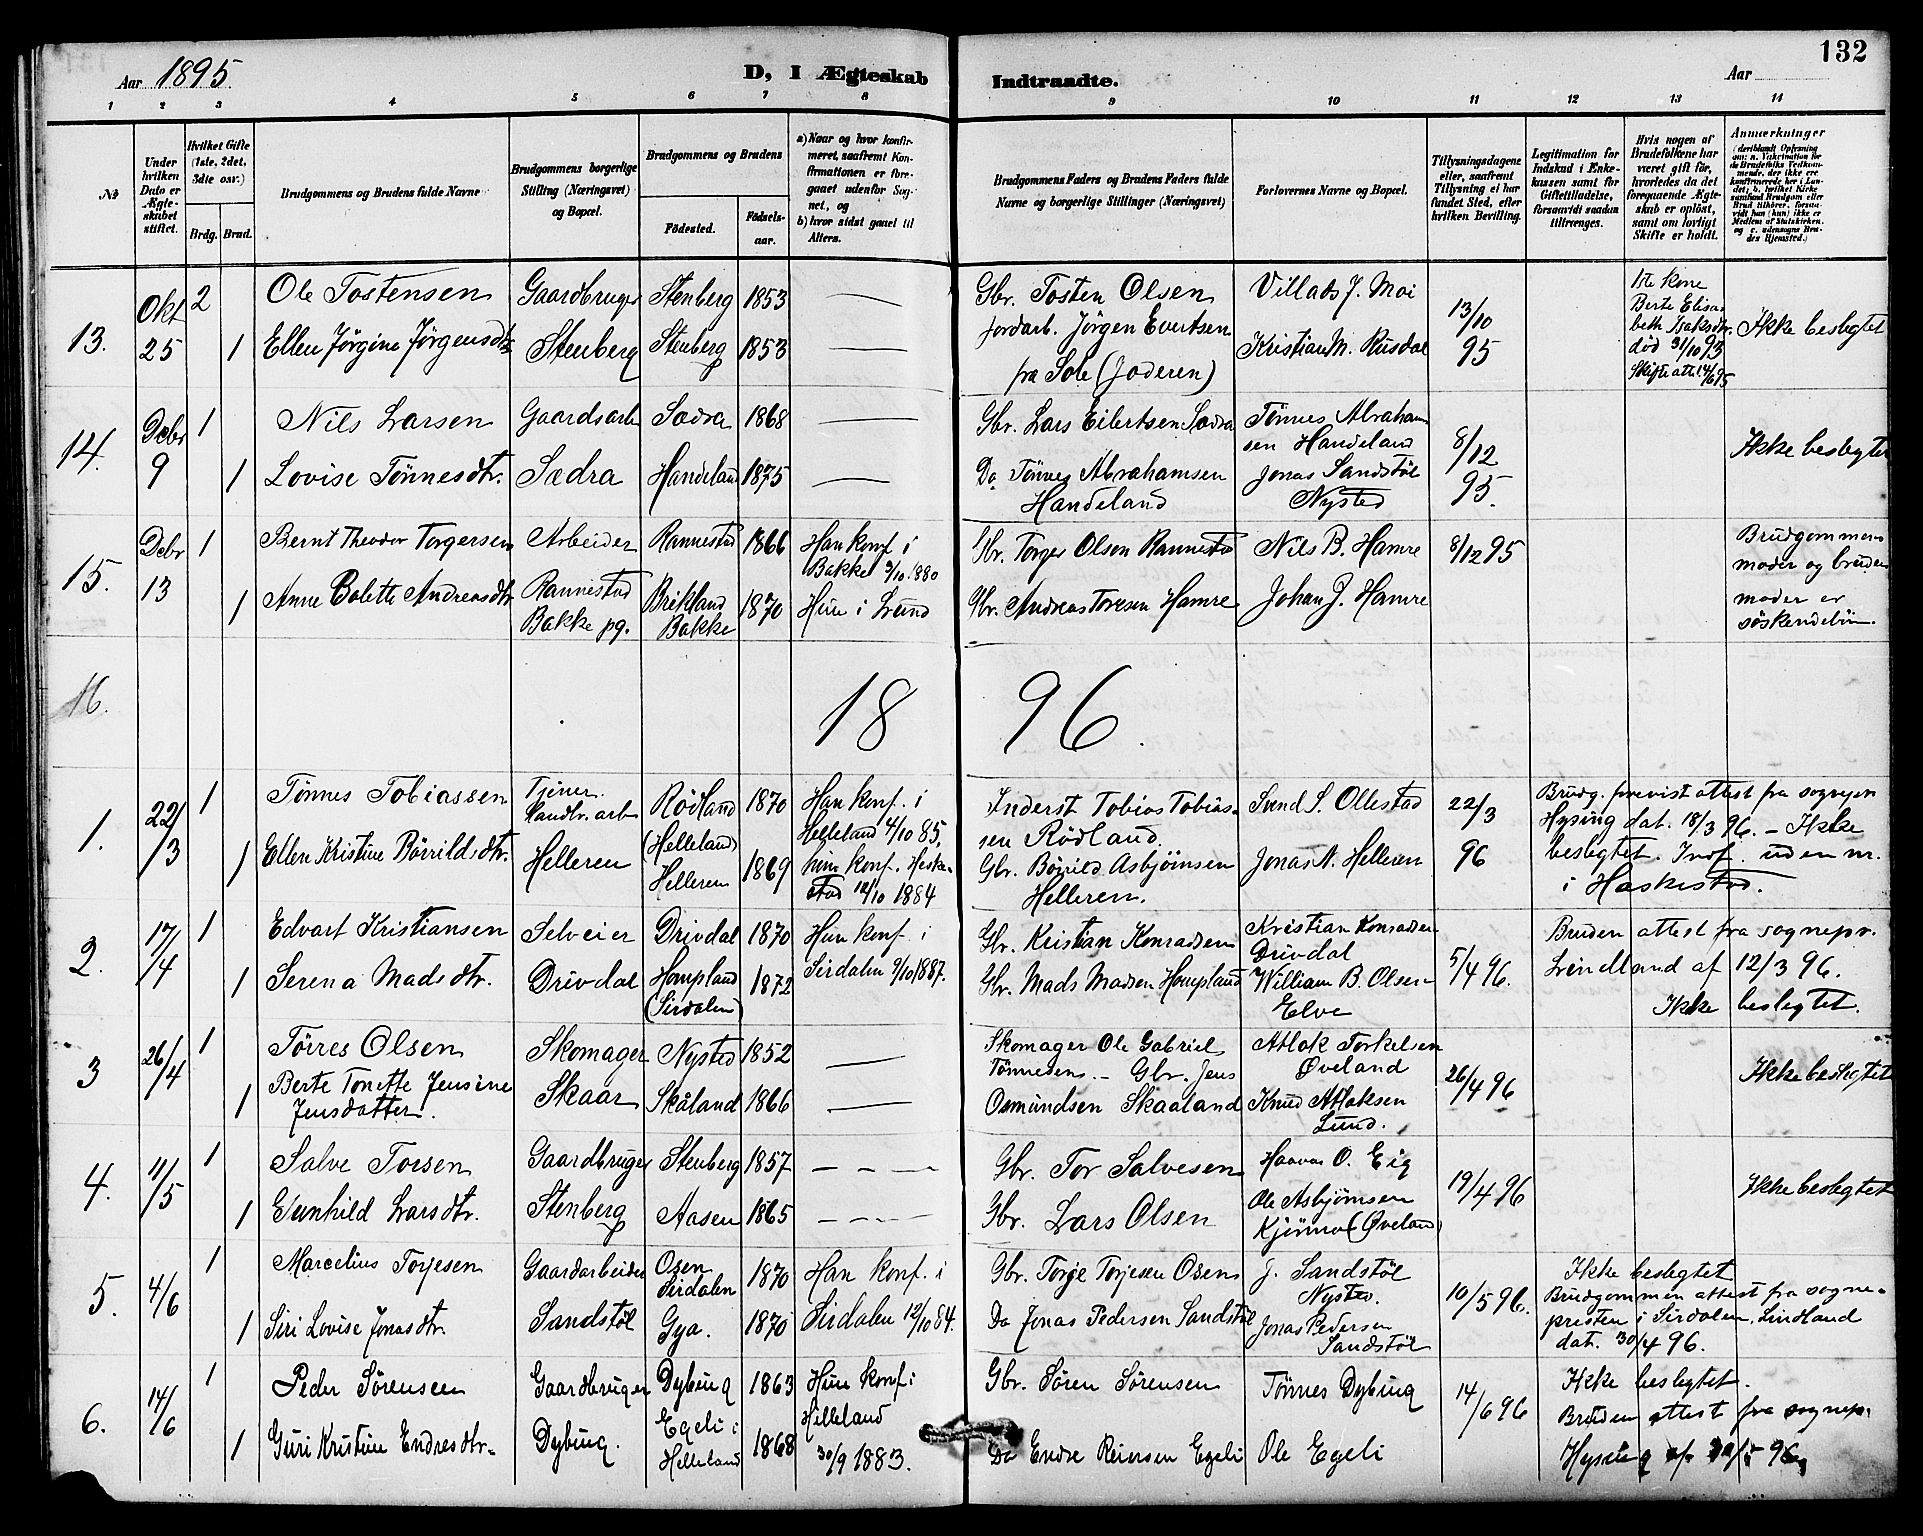 132
Aar 1895.
D, I Ægteskab Indtraadte.
Aar
1 2 3 4 5 6 7 8 9 10 11 12 13 14
No
Under hvilken Dato er Ægteskabet stiftet.
Hvilket Gifte (1ste, 2det, 3die osv.)
Brdg. Brud.
Brudgommens og Brudens fulde Navne
Brudgommens borgerlige Stilling (Næringsvei) og Bopæl.
Brudgommens og Brudens
Fødested. Fødselsaar.
a) Naar og hvor konfirmeret, saafremt Konfirmationen er foregaaet udenfor Sognet, og
b) hvor sidst gaaet til Alters.
Brudgommens Faders og Brudens Faders fulde Navne og borgerlige Stillinger (Næringsvei)
Forlovernes Navne og Bopæl.
Tillysningsdagene eller, saafremt Tillysning ei har fundet Sted, efter hvilken Bevilling.
Legitimation for Indskud i Enkekassen samt for Giftetilladelse, forsaavidt saadan tiltrænges.
Hvis nogen af Brudefolkene har været gift før, hvorledes da det foregaaende Ægteskab er opløst, samt om lovligt Skifte er holdt.
Anmærkninger
13. Okt 25 2 Ole Tostensen Gaardbruger Stenberg 1853 — Gbr. Tosten Olsen Villads J. Moi 13/10 95 1ste kone Berte Elisabeth Isaksdtr. død 31/10 93 Skifteatt. 14/6 95 Ikke beslegtet
1 Ellen Jørgine Jørgensdtr Stenberg Stenberg 1853 — Jordarb. Jörgen Evertsen fra Sole (Jæderen) Kristian M. Rusdal
14. Debr 9 1 Nils Larsen Gaardsarb Sædra 1868 — Gbr. Lars Eilertsen Sædra Tønnes Abrahamsen Handeland 8/12 95. Ikke beslegtet
1 Lovise Tönnesdtr. Sædra Handeland 1875 — Do Tönnes Abrahamsen Handeland Jonas Sandstøl Nysted
15. Debr 13 1 Bernt Theodor Torgersen Arbeider Rannestad 1866 Han konf i Bakke 3/10 1880 Gbr. Torger Olsen Rannestad Nils B. Hamre 8/12 95 Brudgommens moder og brudens moder er söskendebörn.
1 Anne Bolette Andreasdtr Rannestad Bakke pg. Brikland Bakke 1870 Hun i Lund Gbr. Andreas Toresen Hamre Johan J. Hamre
16.
18 96.
1. 22/3 1 Tönnes Tobiassen Tjener. Landbr. arb Rödland (Helleland) 1870 Han konf. i Helleland 4/10 85, Inderst Tobias Tobiassen Rödland. Svend S. Ollestad 22/3 96 Brudg. forevist attest fra sognepr. Hysing dat. 18/3 96. — Ikke beslegtet. Indf. uden nr. i Heskestad.
1 Ellen Kristine Börrildsdtr. Helleren Helleren 1869 hun konf. Heskestad 12/10 1884 Gbr. Börrild Asbjörnsen Helleren. Jonas N. Helleren
2. 17/4 1 Edvart Kristiansen Selveier Drivdal 1870 Hun konf i Sirdalen 9/10 1887. Gbr. Kristian Konradsen Kristian Konradsen Drivdal 5/4 96. Bruden attest fra sognepr. Lindland af 12/3 96. Ikke beslegtet.
1 Serena Madsdtr. Drivdal Hompland (Sirdalen) 1872 Gbr. Mads Madsen Hompland William B. Olsen Elve
3 26/4 1 Törres Olsen Skomager Nysted 1852 — Skomager Ole Gabriel Tönnesens — Gbr. Jens Osmundsen Skaaland Atlak Torkelsen Øveland 26/4 96 Ikke beslegtet
1 Berte Tonette Jensine Jensdatter. Skaar Skåland 1866 — Knud Atlaksen Lund.
4. 11/5 1 Salve Torsen Gaardbruger Stenberg 1857 — — — Gbr. Tor Salvesen Haavar O. Eig 19/4 96 Ikke beslegtet
1 Gunhild Larsdtr. Stenberg Aasen 1865 — — — Gbr. Lars Olsen Ole Asbjörnsen Kjörmo (Øveland)
5. 4/6 1 Marcelius Torjesen Gaardarbeider Osen Sirdalen 1870 Han konf. i Sirdalen 12/10 84. Gbr. Torje Torjesen Osen J. Sandstöl Nysted. 10/5 96. Ikke beslegtet Brudgommen attest fra sognepresten i Sirdalen, Lindland dat. 30/4 96.
1 Siri Lovise Jonasdtr. Sandstöl Gya. 1870 Do Jonas Pedersen Sandstöl Jonas Pedersen Sandstöl
6. 14/6 1 Peder Sörensen Gaardbruger Dybing 1863 Hun konf i Helleland 30/9 1883. Gbr. Sören Sörensen Tönnes Dybing 14/6 96 Ikke beslegtet. Bruden attest fra sognepr. Hysing
1 Guri Kristine Endresdtr. Dybing. Egeli i Helleland 1868 Do Endre Reinsen Egeli Ole Egeli